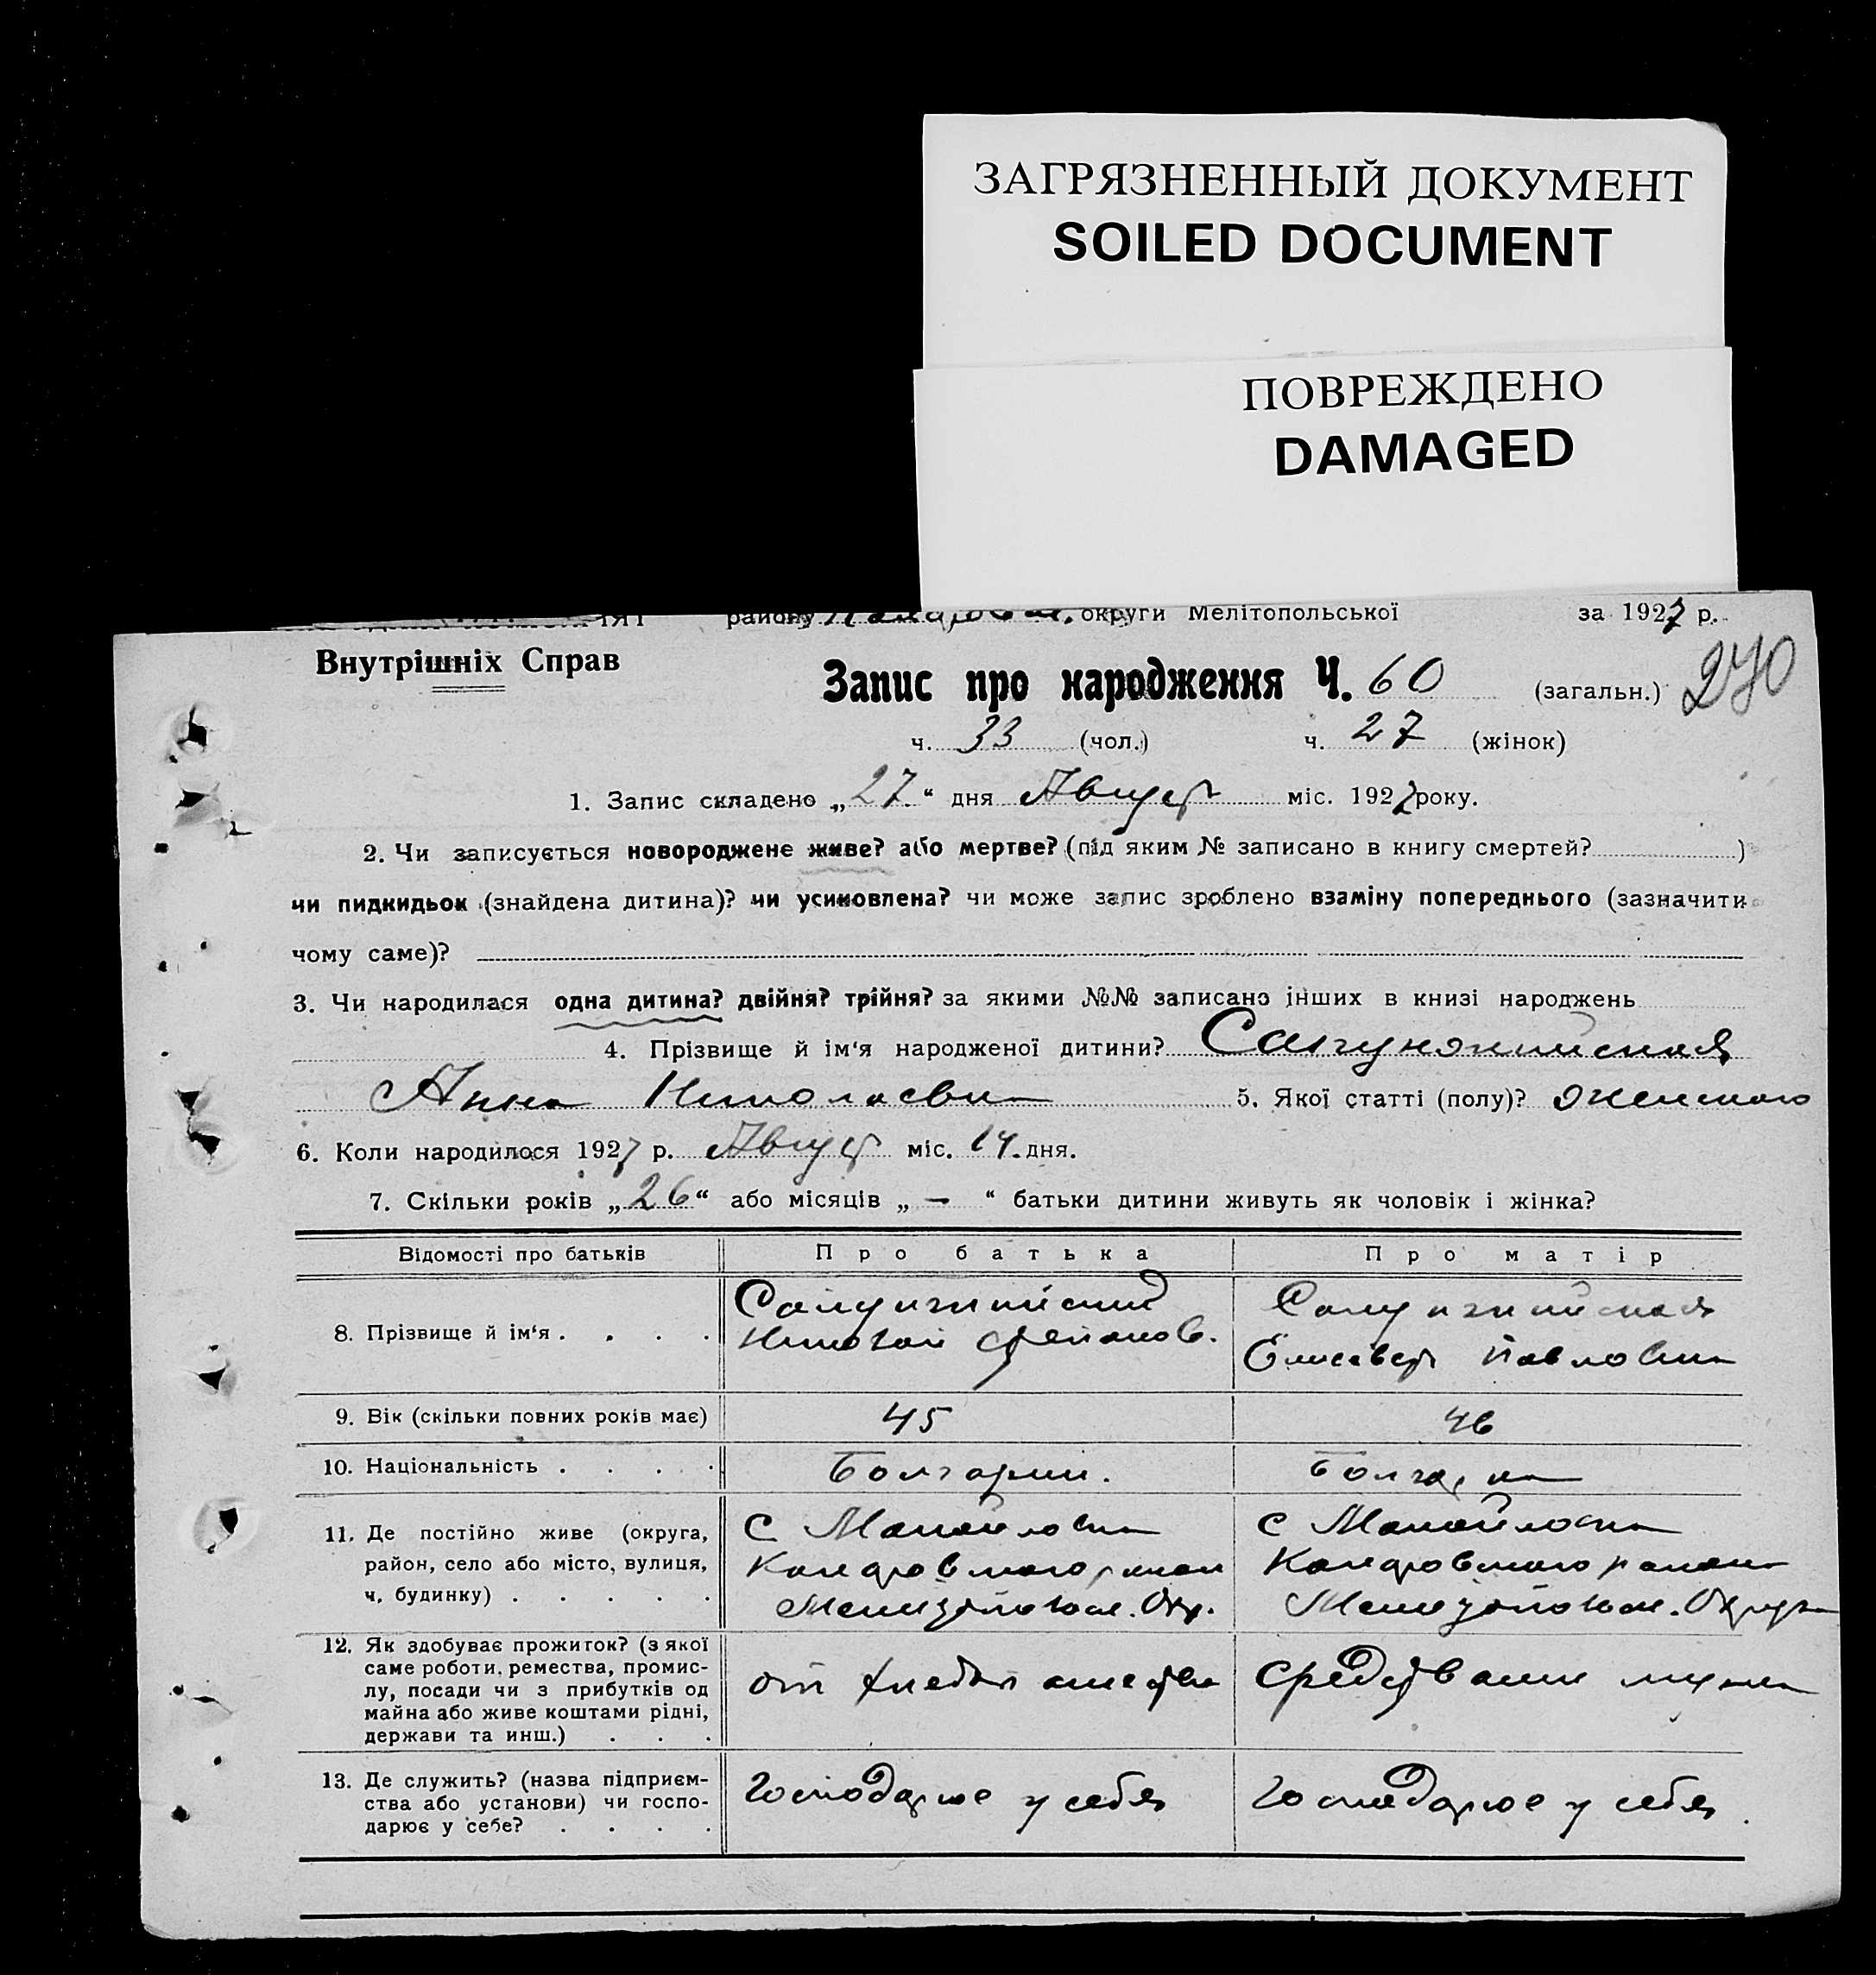 ЗАГРЯЗНЕННЫЙ ДОКУМЕНТ
SOILED DOCUMENT
ПОВРЕЖДЕНО
DAMAGED
району округи Мелітопольської за 1927 р.
Внутрішніх Справ
Запис про народження Ч. 60 (загальн.) 270
ч. 33 (чол.) ч. 27 (жінок)
1. Запис складено „27“ дня Август міс. 1927 року.
2. Чи записується новороджене живе? або мертве? (під яким № записано в книгу смертей? )
чи пидкидьок (знайдена дитина)? чи усиновлена? чи може запис зроблено взаміну попереднього (зазначити
чому саме)?
3. Чи народилася одна дитина? двійня? трійня? за якими №№ записано інших в книзі народжень
4. Прізвище й ім‘я народженої дитини?
Анна Николаевн 5. Якої статті (полу)? женского
6. Коли народилося 1927 р. Август міс. 14 дня.
7. Скільки років „26“ або місяців „ — “ батьки дитини живуть як чоловік і жінка?
Відомості про батьків Про батька Про матір
8. Прізвище й ім‘я . . . .
Николай Степанов. Елисавет Павловна
9. Вік (скільки повних років має) 45 46
10. Національність . . . . Болгарин. Болгарка
11. Де постійно живе (округа, с Манойловка с Манойловка
район, село або місто, вулиця,
ч. будинку) . . . . . Мелитопольск. Окр. Мелитопольск. Округа
12. Як здобуває прожиток? (з якої
саме роботи, ремества, промис-
лу, посади чи з прибутків од от хлебопашества средствами мужа
майна або живе коштами рідні,
держави та инш.) . . .
13. Де служить? (назва підприєм-
ства або установи) чи госпо- господарюе у себя господарюе у себя
дарює у себе? . . . .